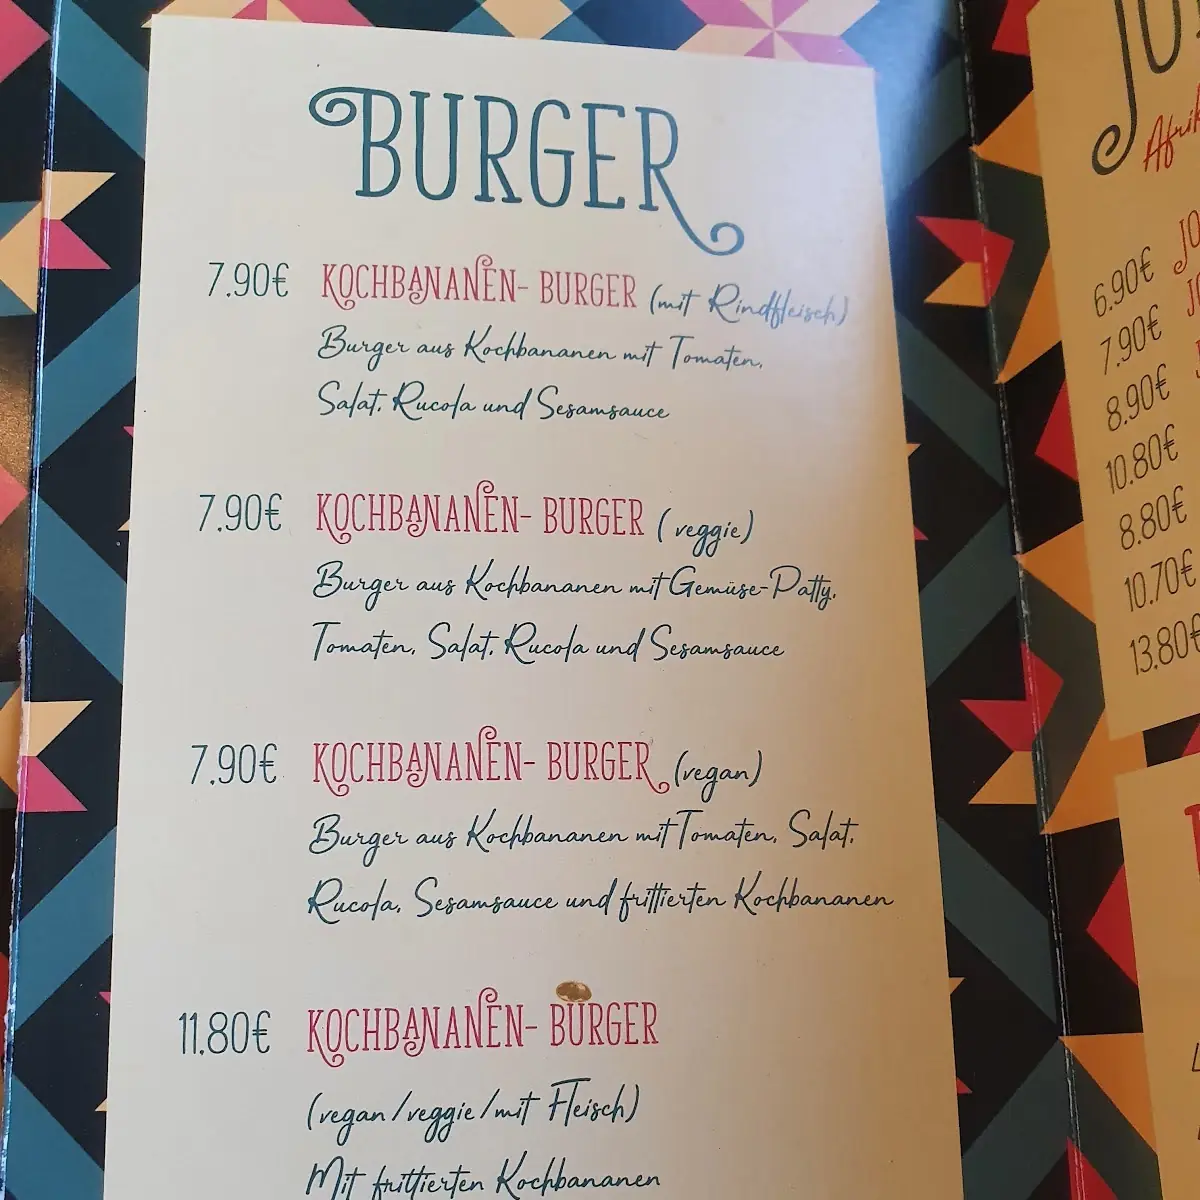 BURGER
7.90€ KOCHBANANEN- BURGER (mit Rindfleisch)
Burger aus Kochbananen mit Tomaten,
Salat, Rucola und Sesamsauce
7.90€ KOCHBANANEN- BURGER (veggie)
Burger aus Kochbananen mit Gemüse-Patty,
Tomaten, Salat, Rucola und Sesamsauce
7.90€ KOCHBANANEN- BURGER (vegan)
Burger aus Kochbananen mit Tomaten, Salat,
Rucola, Sesamsauce und frittierten Kochbananen
11.80€ KOCHBANANEN- BURGER
(vegan/veggie/mit Fleisch)
Mit frittierten Kochbananen
6.90€
7.90€
8.90€
10.80€
8.80€
10.70€
13.80€